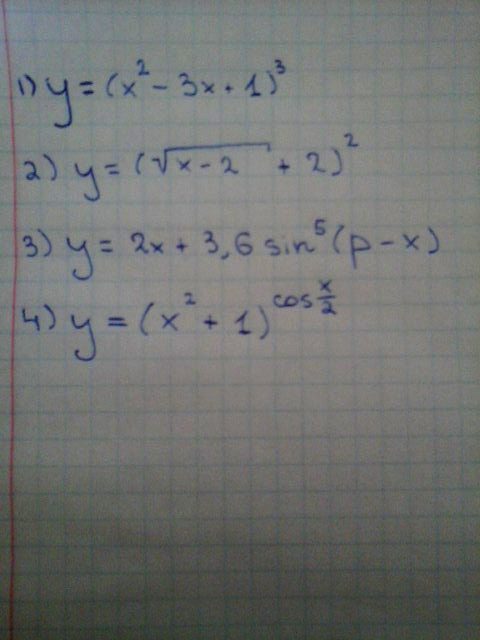 1) y = (x² - 3x + 1)³
2) y = (√(x - 2) + 2)²
3) y = 2x + 3,6 sin⁵(p - x)
4) y = (x² + 1)^(cos x/2)